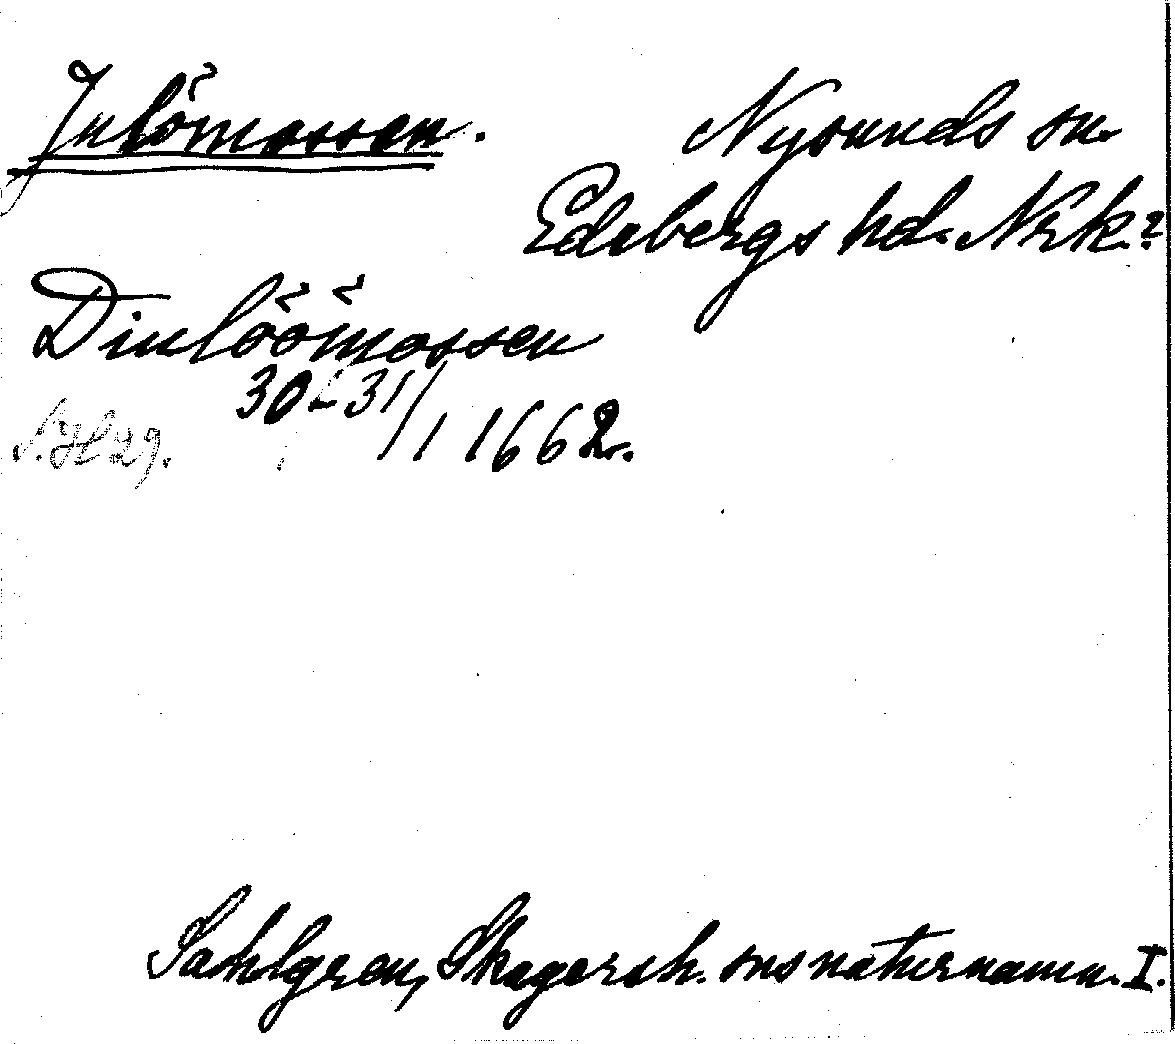 Julömossen.
Nysunds sn.
Edsbergs hd. Nrk.
Diulöömossen
30–31/1 1662.
N.H 29.
Sahlgren, Skagersh. sns naturnamn. I.